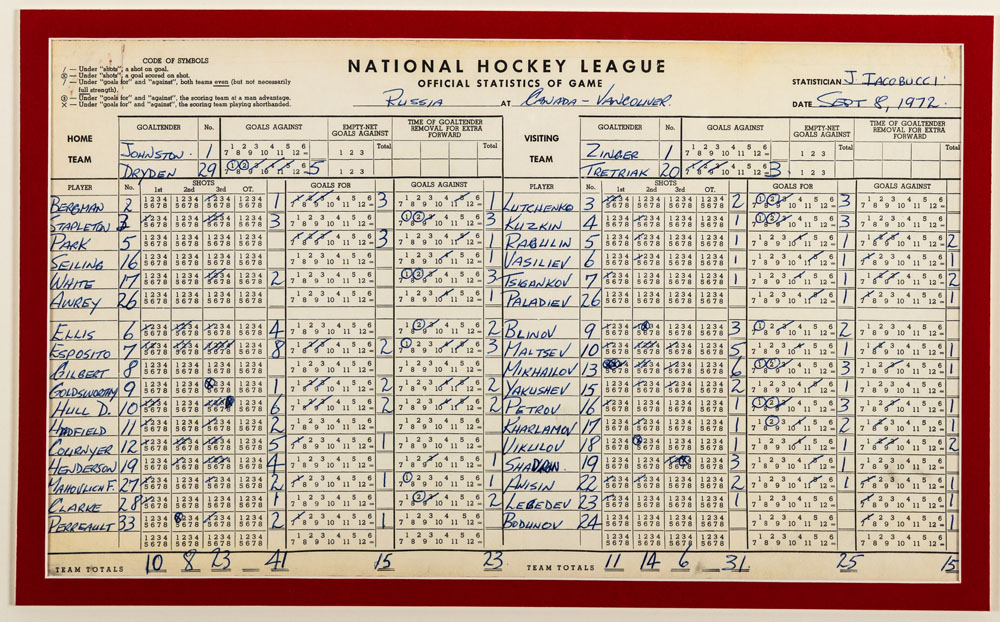 CODE OF SYMBOLS
/ — Under "shots", a shot on goal.
ⓧ — Under "shots", a goal scored on shot.
/ — Under "goals for" and "against", both teams even (but not necessarily full strength).
— Under "goals for" and "against", the scoring team at a man advantage.
X — Under "goals for" and "against", the scoring team playing shorthanded.
NATIONAL HOCKEY LEAGUE
OFFICIAL STATISTICS OF GAME
RUSSIA AT CANADA - VANCOUVER
STATISTICIAN J IACOBUCCI
DATE SEPT 8, 1972.
HOME TEAM
GOALTENDER No. GOALS AGAINST EMPTY-NET GOALS AGAINST Total TIME OF GOALTENDER REMOVAL FOR EXTRA FORWARD Total
JOHNSTON. 1
DRYDEN 29 5
VISITING TEAM
GOALTENDER No. GOALS AGAINST EMPTY-NET GOALS AGAINST Total TIME OF GOALTENDER REMOVAL FOR EXTRA FORWARD Total
ZINGER 1
TRETRIAK 20 3
PLAYER No. SHOTS 1st 2nd 3rd OT. GOALS FOR GOALS AGAINST
BERGMAN 2 1 3 1
STAPLETON 3 3 3
PARK 5 3 1
SEILING 16 1
WHITE 17 2 3
AWREY 26 1
ELLIS 6 4 2
ESPOSITO 7 8 2 3
GILBERT 8
GOLDSWORTHY 9 1 2 2
HULL D. 10 6 2 2
HADFIELD 11 2
COURNYER 12 5 1
HENDERSON 19 4 1
MAHOVLICH F. 27 2 1 1
CLARKE 28 1 2
PERREAULT 33 2 1
TEAM TOTALS 10 8 23 — 41 15 23
PLAYER No. SHOTS 1st 2nd 3rd OT. GOALS FOR GOALS AGAINST
LUTCHENKO 3 2 3
KUZKIN 4 3
RAGULIN 5 1 1 2
VASILIEV 6 1 1 1
TSIGANKOV 7 1 1 2
PALADIEV 26 1 1
BLINOV 9 3 2
MALTSEV 10 5 1 1
MIKHAILOV 13 6 3 1
YAKUSHEV 15 2 1
PETROV 16 3 1
KHARLAMOV 17 2 1
VIKULOV 18 1 1 2
SHADRIN. 19 3 1
ANISIN 22 2 1 1
LEBEDEV 23 1 1
BODUNOV 24 1
TEAM TOTALS 11 14 6 — 31 25 15